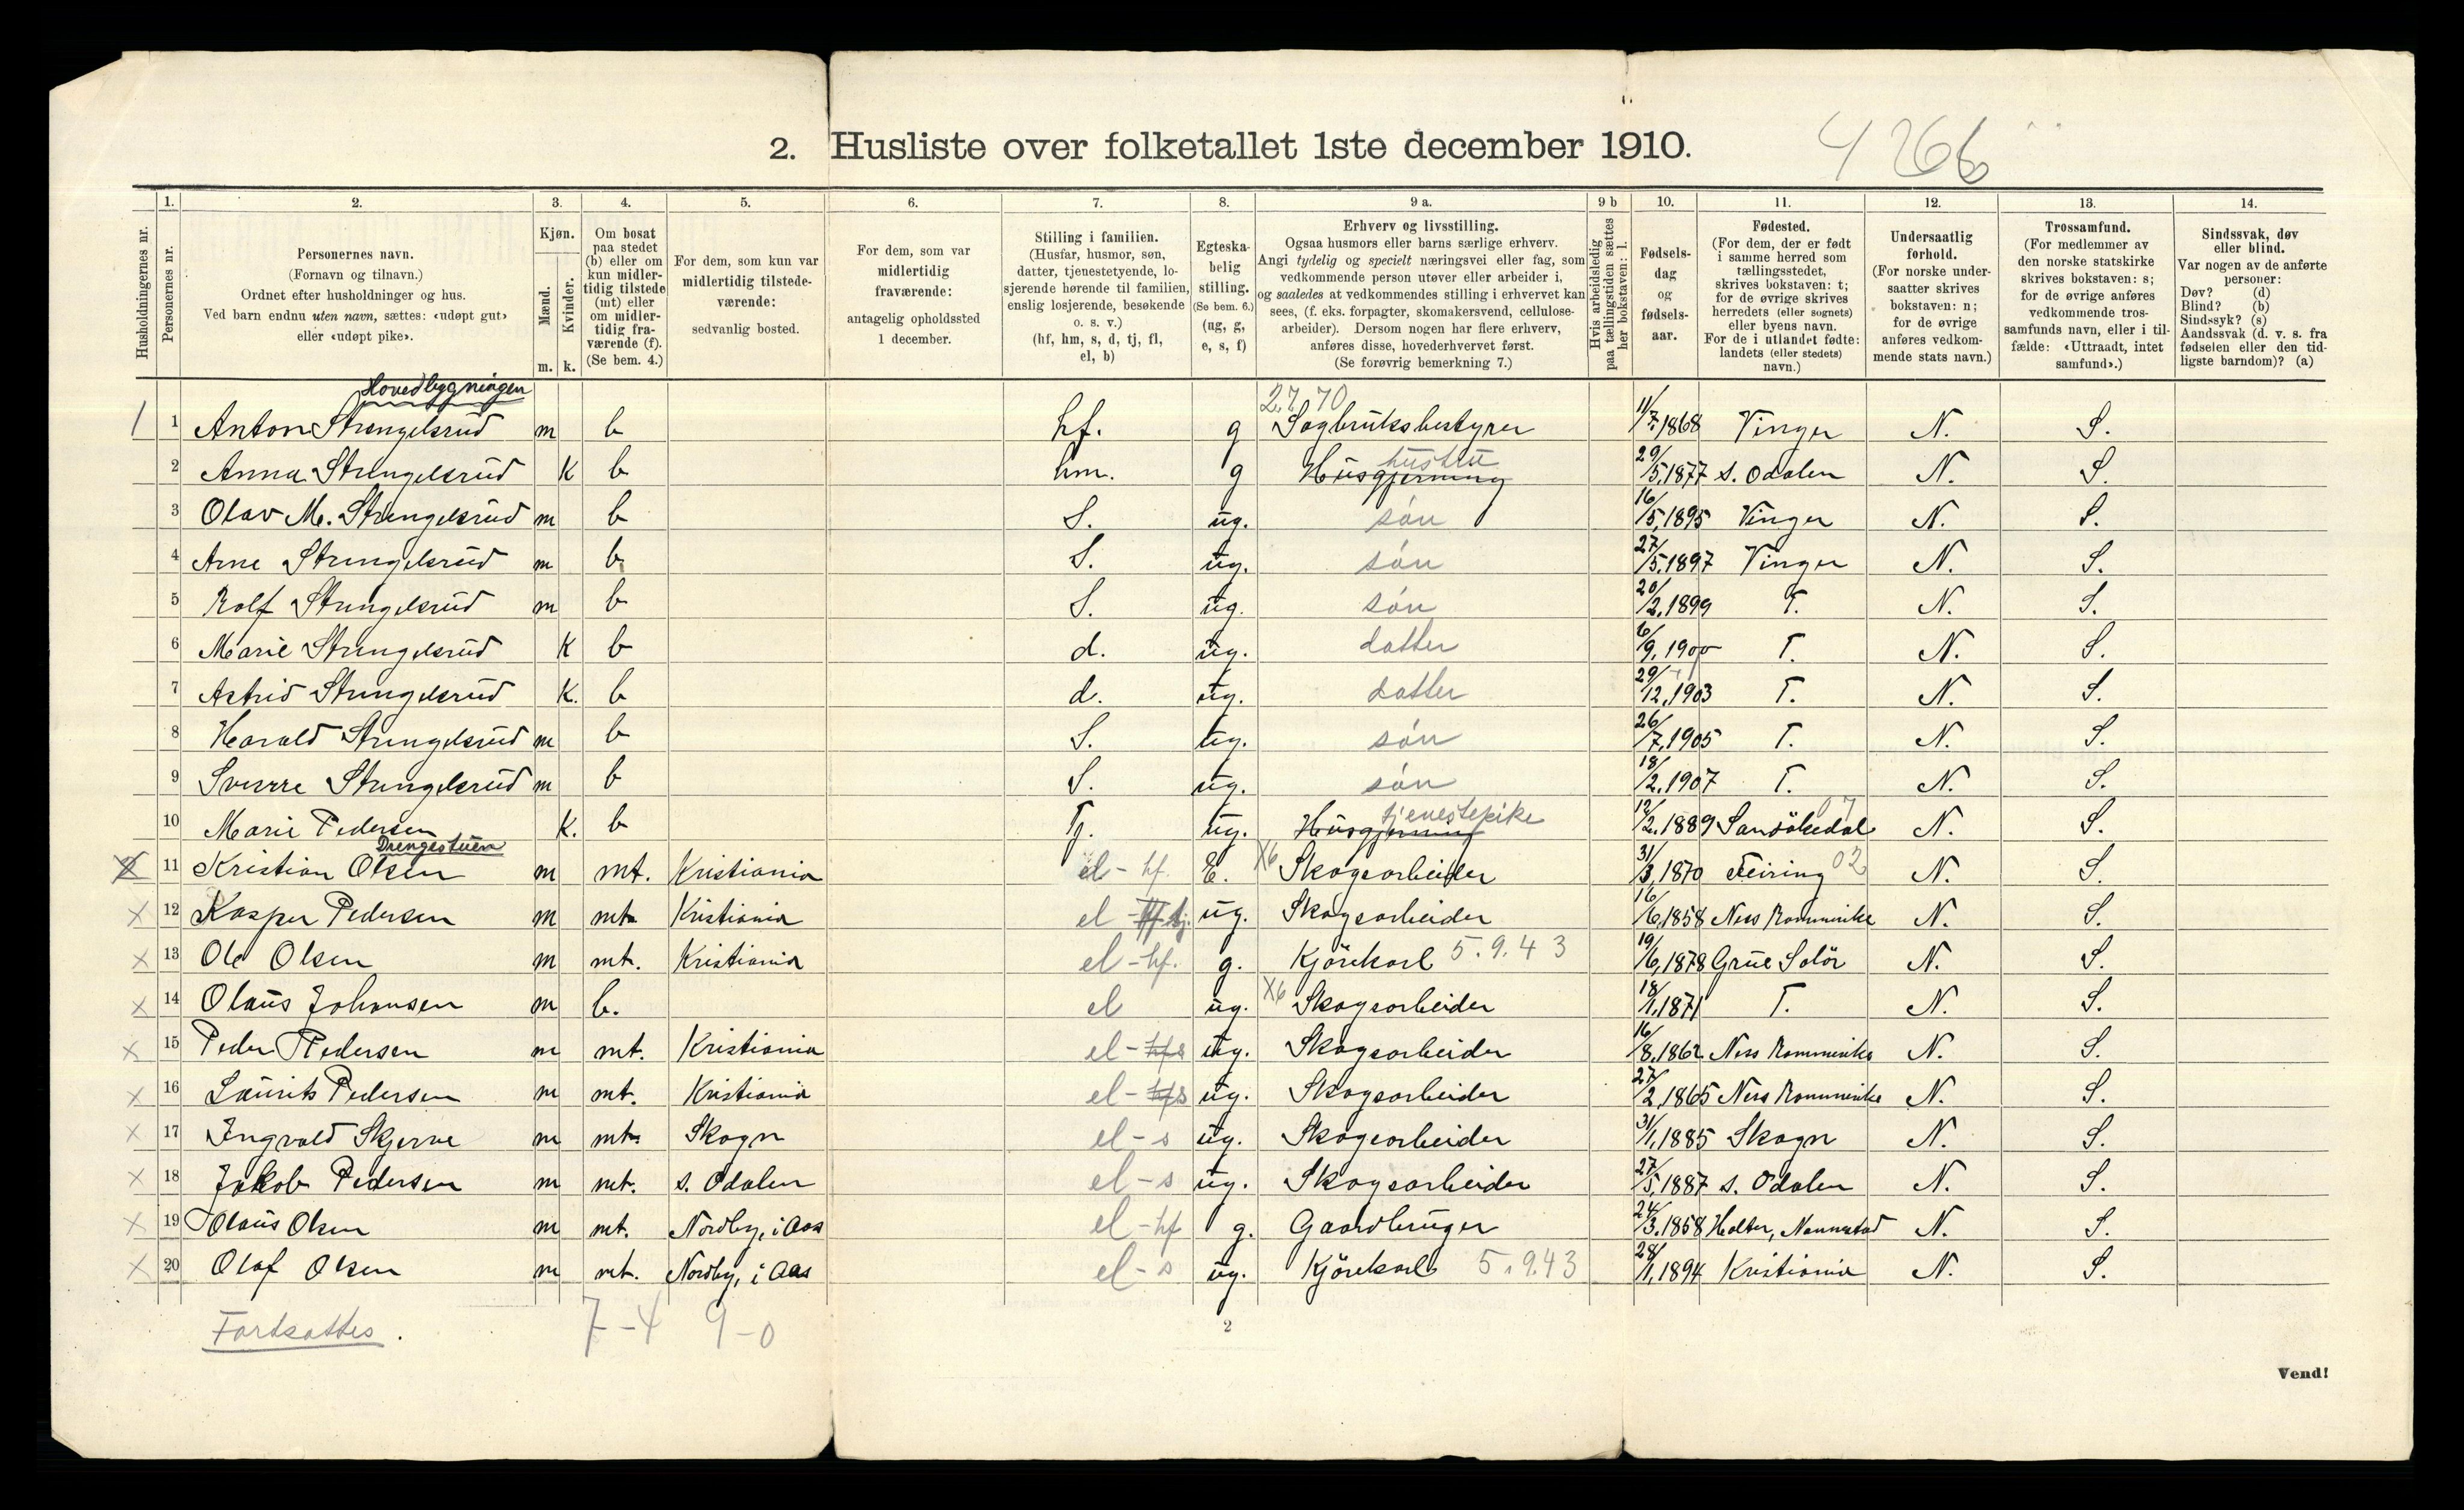 2. Husliste over folketallet 1ste december 1910.
4266
Husholdningernes nr.
1. Personernes nr.
2. Personernes navn.
(Fornavn og tilnavn.)
Ordnet efter husholdninger og hus.
Ved barn endnu uten navn, sættes: «udøpt gut»
eller «udøpt pike».
3. Kjøn.
Mænd. Kvinder.
m. k.
4. Om bosat
paa stedet
(b) eller om
kun midler-
tidig tilstede
(mt) eller
om midler-
tidig fra-
værende (f).
(Se bem. 4.)
5. For dem, som kun var
midlertidig tilstede-
værende:
sedvanlig bosted.
6. For dem, som var
midlertidig
fraværende:
antagelig opholdssted
1 december.
7. Stilling i familien.
(Husfar, husmor, søn,
datter, tjenestetyende, lo-
sjerende hørende til familien,
enslig losjerende, besøkende
o. s. v.)
(hf, hm, s, d, tj, fl,
el, b)
8. Egteska-
belig
stilling.
(Se bem. 6.)
(ug, g,
e, s, f)
9 a. Erhverv og livsstilling.
Ogsaa husmors eller barns særlige erhverv.
Angi tydelig og specielt næringsvei eller fag, som
vedkommende person utøver eller arbeider i,
og saaledes at vedkommendes stilling i erhvervet kan
sees, (f. eks. forpagter, skomakersvend, cellulose-
arbeider). Dersom nogen har flere erhverv,
anføres disse, hovederhvervet først.
(Se forøvrig bemerkning 7.)
9 b Hvis arbeidsledig
paa tællingstiden sættes
her bokstaven: l.
10. Fødsels-
dag
og
fødsels-
aar.
11. Fødested.
(For dem, der er født
i samme herred som
tællingsstedet,
skrives bokstaven: t;
for de øvrige skrives
herredets (eller sognets)
eller byens navn.
For de i utlandet fødte:
landets (eller stedets)
navn.)
12. Undersaatlig
forhold.
(For norske under-
saatter skrives
bokstaven: n;
for de øvrige
anføres vedkom-
mende stats navn.)
13. Trossamfund.
(For medlemmer av
den norske statskirke
skrives bokstaven: s;
for de øvrige anføres
vedkommende tros-
samfunds navn, eller i til-
fælde: «Uttraadt, intet
samfund».)
14. Sindssvak, døv
eller blind.
Var nogen av de anførte
personer:
Døv? (d)
Blind? (b)
Sindssyk? (s)
Aandssvak (d. v. s. fra
fødselen eller den tid-
ligste barndom)? (a)
Hovedbygningen 27.70
1 1 Anton Strengelsrud m b hf. g Sagbruksbestyrer 11/7.1868 Vinger N. S.
2 Anna Strengelsrud K b hm. g Husgjerning hustru 29/5.1877 s. Odalen N. S.
3 Olav M. Strengelsrud m b S. ug. søn 16/5.1895 Vinger N. S.
4 Arne Strengelsrud m b S. ug. søn 27/5.1897 Vinger N. S.
5 Rolf Strengelsrud m b S. ug. søn 20/2.1899 T. N. S.
6 Marie Strengelsrud K b d. ug. datter 6/9.1900 T. N. S.
7 Astrid Strengelsrud K. b d. ug. datter 29/12.1903 T. N. S.
8 Harald Strengelsrud m b S. ug. søn 26/7.1905 T. N. S.
9 Sverre Strengelsrud m b S. ug. søn 18/2.1907 T. N. S.
10 Marie Pedersen K. b Tj. ug. Husgjerning tjenestepike 12/2.1889 Sandökedal 07 N. S.
Drengestuen
11 Kristian Olsen m mt. Kristiania el - hf. E. X6 Skogsarbeider 31/3.1870 Feiring 02 N. S.
x 12 Kasper Pedersen m mt. Kristiania el ug. Skogsarbeider 16/6.1858 Ness Rommerike N. S.
x 13 Ole Olsen m mt. Kristiania el - hf. g. Kjörekarl 5.9.43 19/6.1878 Grue Solör N. S.
x 14 Olaüs Johansen m b. el ug. X6 Skogsarbeider 18/1.1871 T. N. S.
x 15 Peder Pedersen m mt. Kristiania el - hf s ug. Skogsarbeider 16/8.1862 Ness Rommerike N. S.
x 16 Laurits Pedersen m mt. Kristiania el - hf s ug. Skogsarbeider 27/2.1865 Ness Rommerike N. S.
x 17 Ingvald Skjerve m mt. Skogn el - s ug. Skogsarbeider 31/1.1885 Skogn N. S.
x 18 Jakob Pedersen m mt. s. Odalen el - s ug. Skogsarbeider 27/5.1887 s. Odalen N. S.
x 19 Olaus Olsen m mt. Nordby, i Aas el - hf g. Gaardbruger 24/3.1858 Holter, Nannestad N. S.
x 20 Olaf Olsen m mt. Nordby, i Aas el - s ug. Kjörekarl 5.9.43 28/1.1894 Kristiania N. S.
Fortsattes. 7-4 9-0
2
Vend!